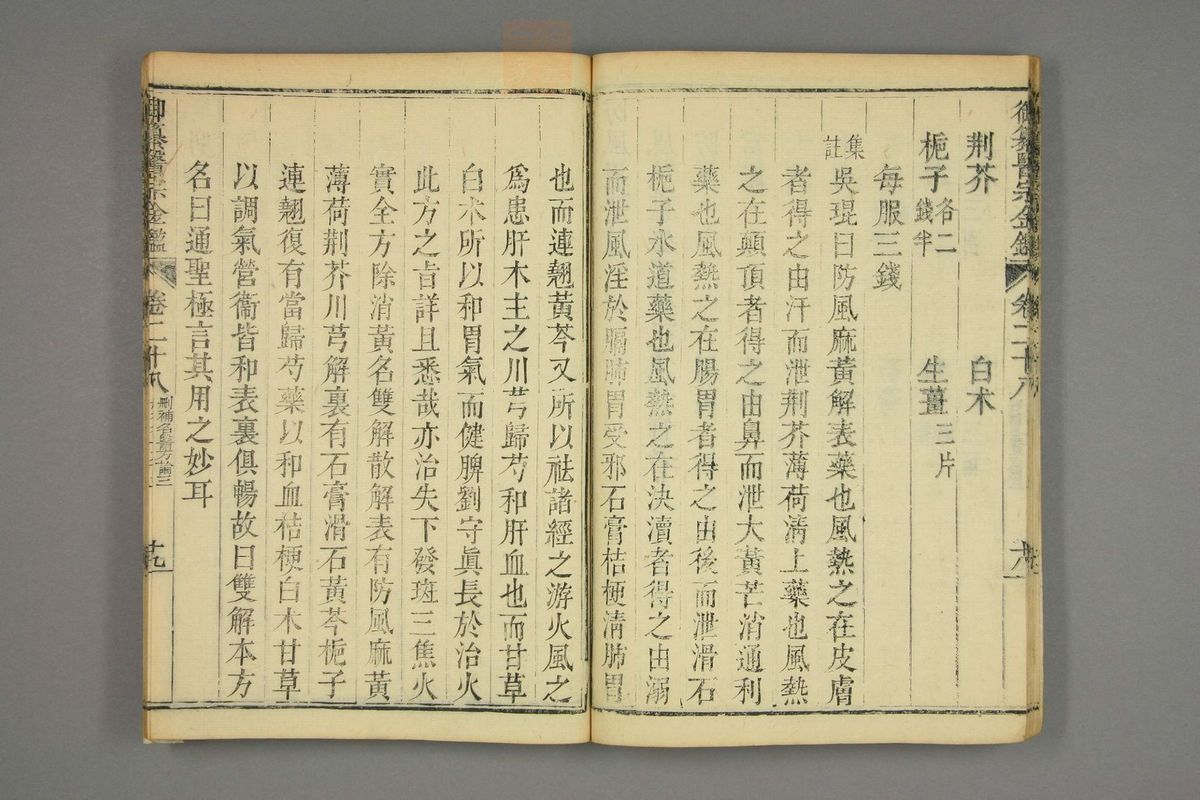 荆芥　白术
梔子各二錢半　生薑三片
每服三錢
集註吳琨曰防風麻黃解表藥也風熱之在皮膚
者得之由汗而泄荆芥薄荷清上藥也風熱
之在顛頂者得之由鼻而泄大黃芒消通利
藥也風熱之在腸胃者得之由後而泄滑石
梔子水道藥也風熱之在決瀆者得之由溺
而泄風淫於膈肺胃受邪石膏桔梗清肺胃
也而連翹黃芩又所以祛諸經之游火風之
爲患肝木主之川芎歸芍和肝血也而甘草
白术所以和胃氣而健脾劉守眞長於治火
此方之旨詳且悉哉亦治失下發斑三焦火
實全方除消黃名雙解散解表有防風麻黃
薄荷荆芥川芎解裏有石膏滑石黃芩梔子
連翹復有當歸芍藥以和血桔梗白术甘草
以調氣營衞皆和表裏俱暢故曰雙解本方
名曰通聖極言其用之妙耳
御纂醫宗金鑑　卷二十八　刪補名醫方論三　十九